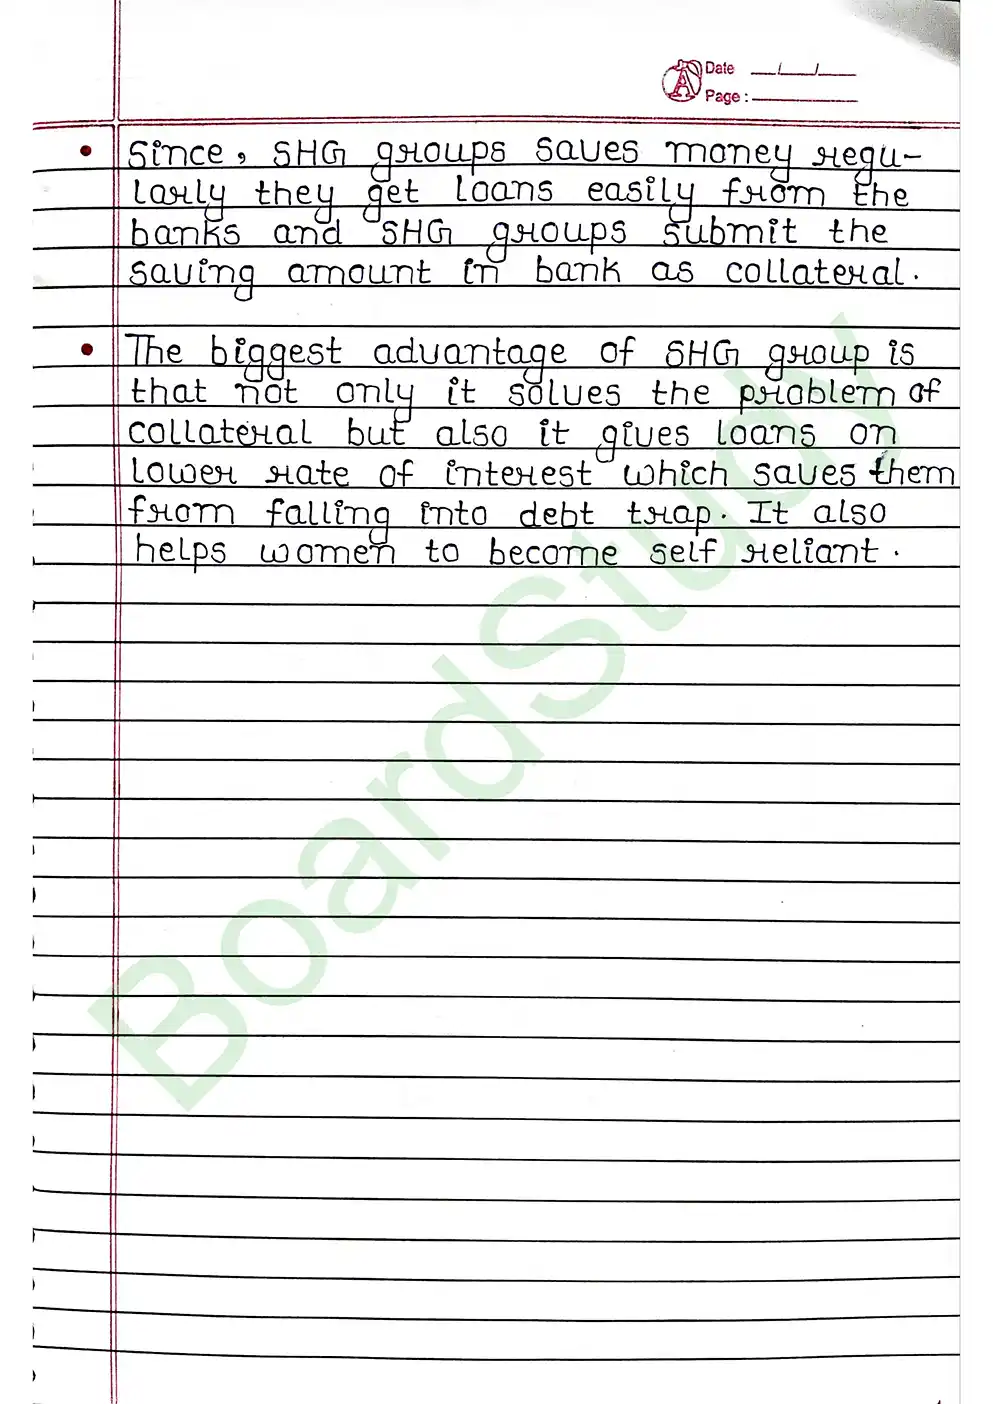 Date __/__/__
Page : ________
• Since, SHG groups saves money regu-
larly they get loans easily from the
banks and SHG groups submit the
saving amount in bank as collateral.
• The biggest advantage of SHG group is
that not only it solves the problem of
collateral but also it gives loans on
lower rate of interest which saves them
from falling into debt trap. It also
helps women to become self reliant.
BoardStudy